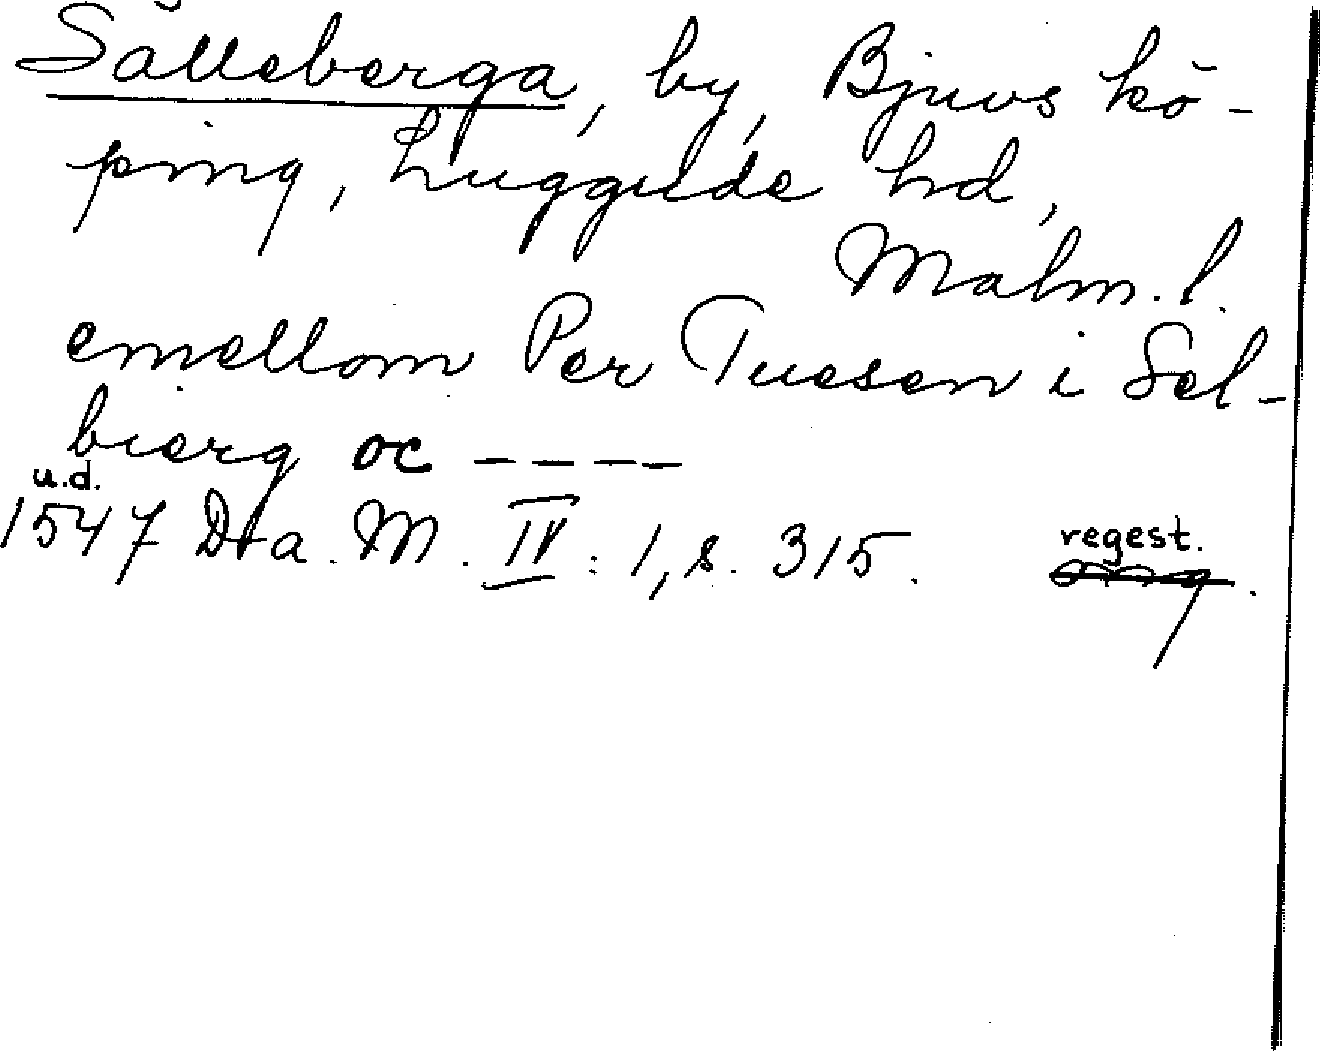 Sälleberga, by, Bjuvs kö-
ping, Luggude hd,
Malm. l.
emellom Per Tuesen i Sel-
bierg oc ----
u.d.
1547 Da. M. IV: 1, s. 315. regest.